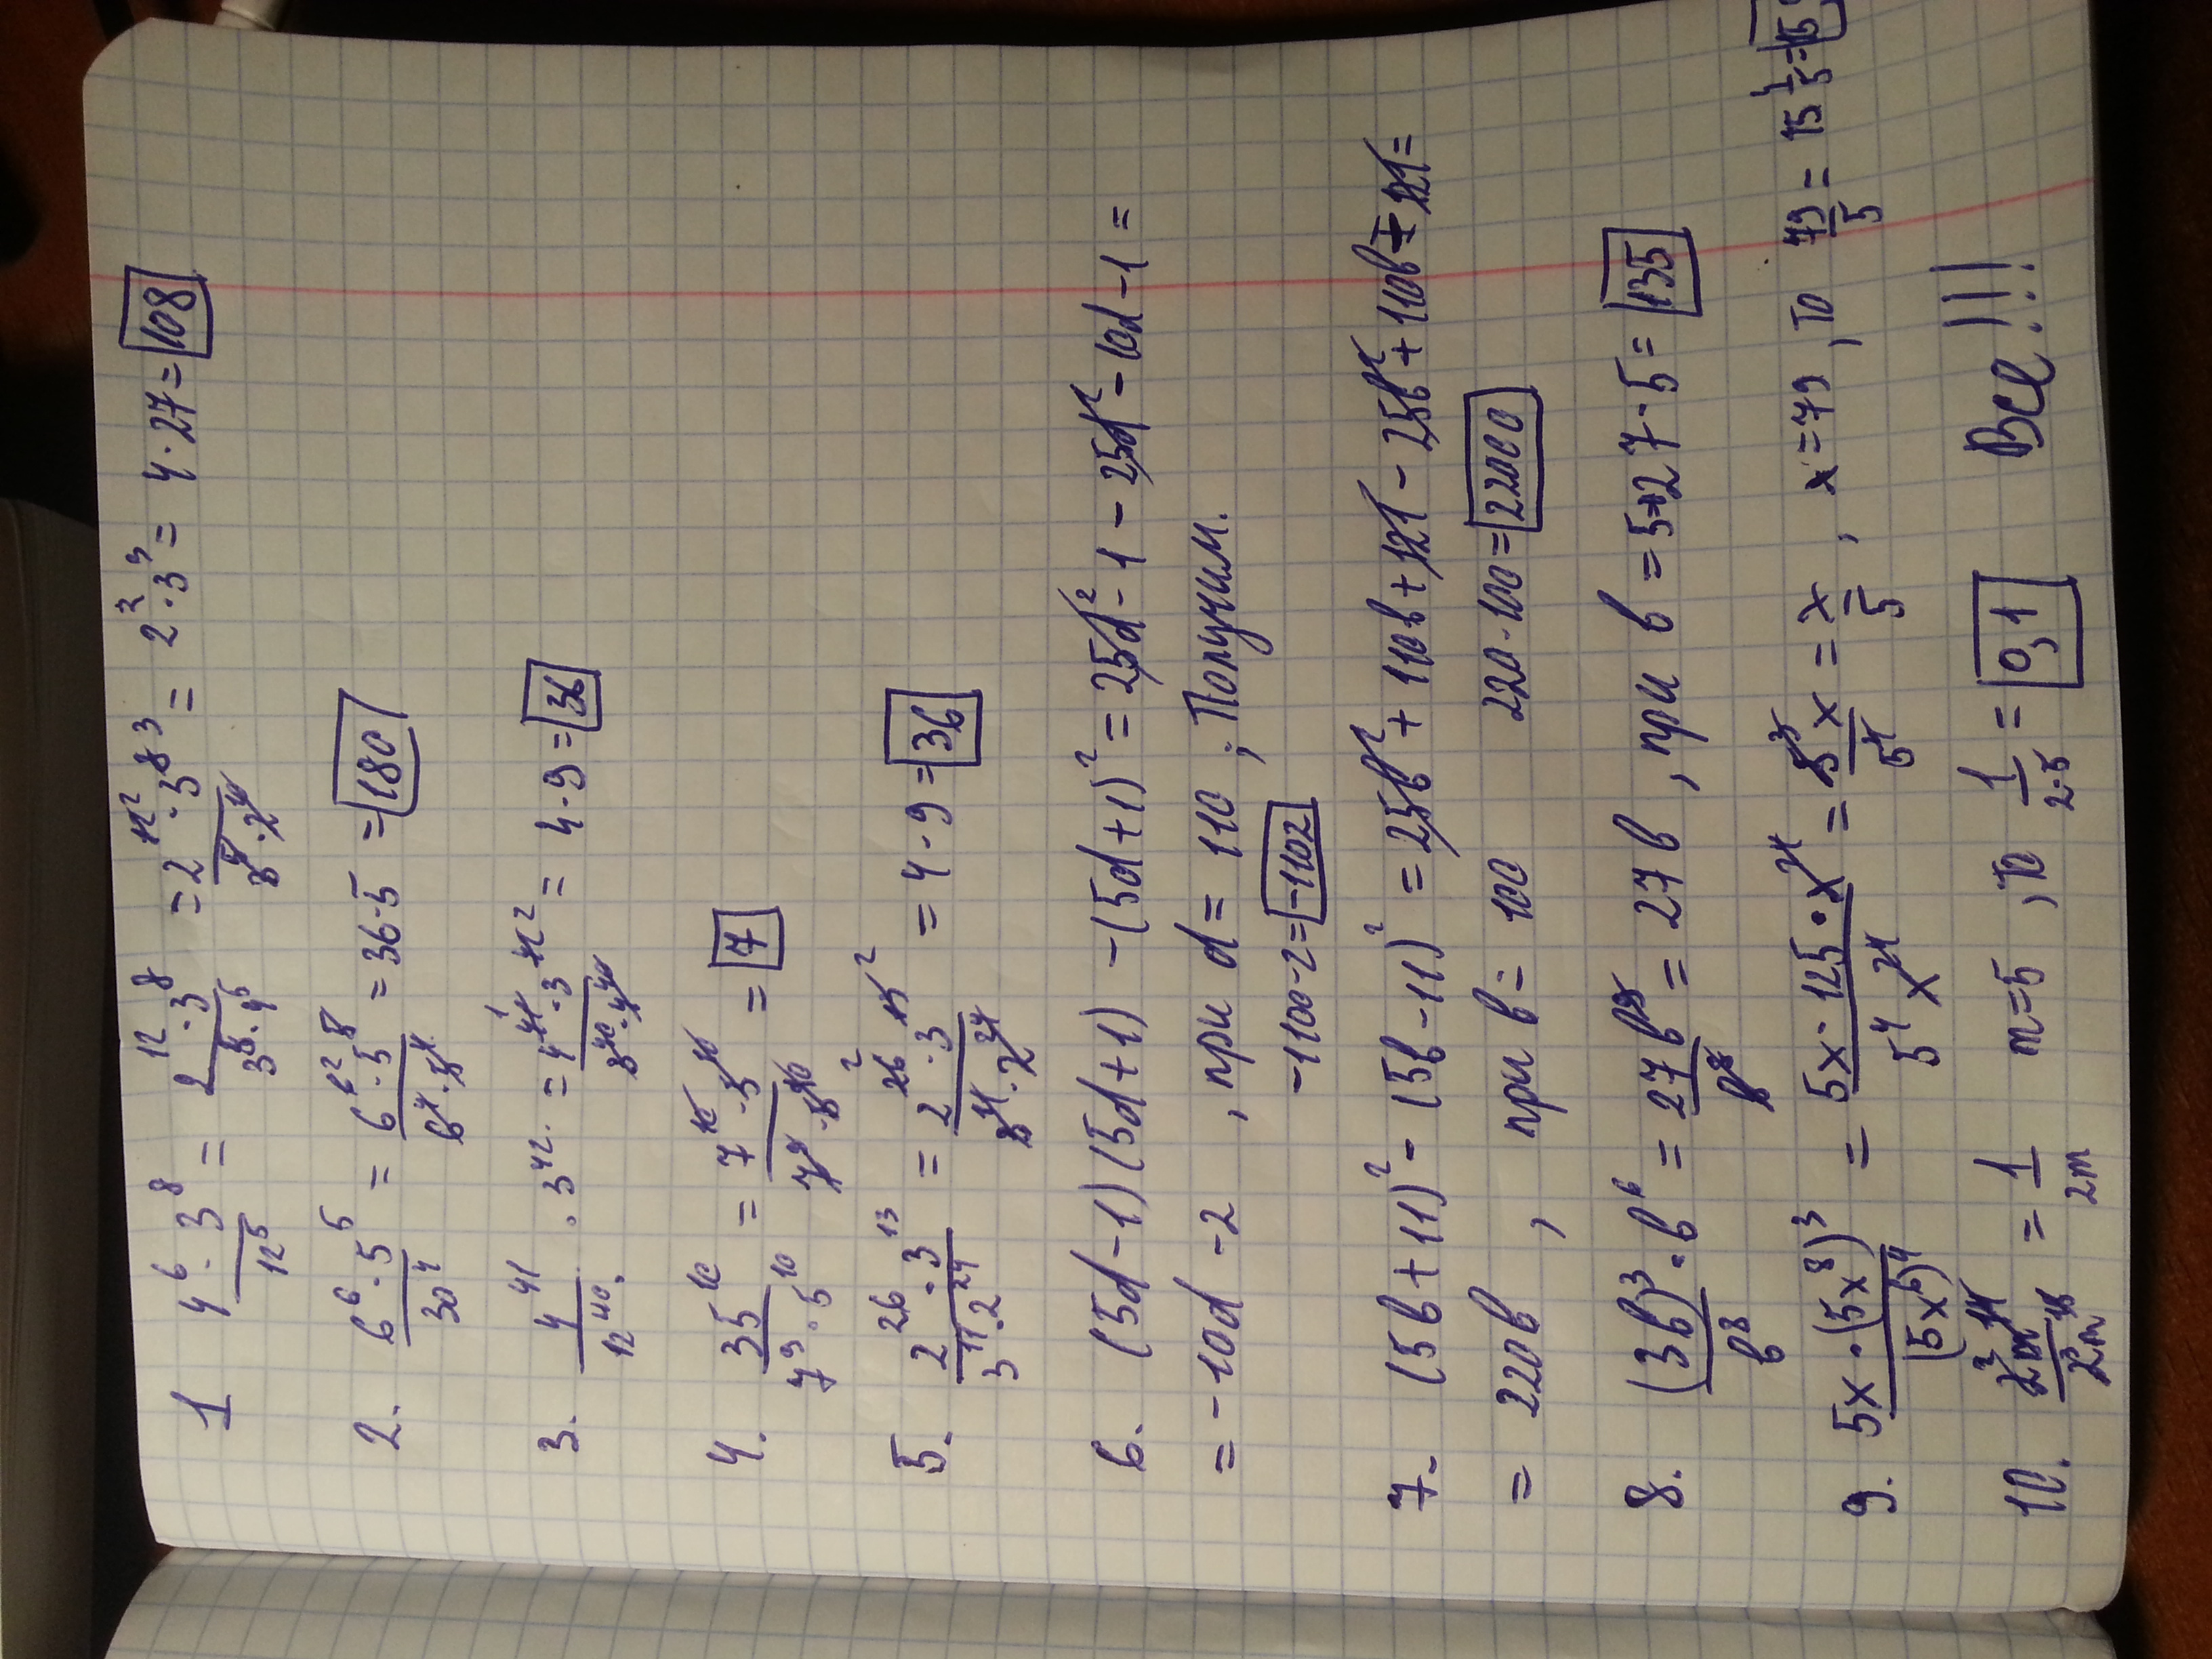 1 4⁶·3⁸/12⁵ = 2¹²·3⁸/3⁵·4⁵ = 2¹²²·3⁸³/3⁵·2¹⁰ = 2²·3³ = 4·27 = 108
2. 6⁶·5⁵/30⁴ = 6⁶²·5⁵/6⁴·5⁴ = 36·5 = 180
3. 4⁴¹/12⁴⁰·3⁴² = 4⁴¹·3⁴²²/3⁴⁰·4⁴⁰ = 4·9 = 36
4. 35¹⁰/7⁹·5¹⁰ = 7¹⁰·5¹⁰/7⁹·5¹⁰ = 7
5. 2²⁶·3¹³/3¹¹·2²⁴ = 2²⁶²·3¹³²/3¹¹·2²⁴ = 4·9 = 36
6. (5d-1)(5d+1) -(5d+1)² = 25d²-1 - 25d² - 10d - 1 =
= -10d -2 , при d = 110 ; Получим.
-1100-2 = -1102
7. (5в+11)² - (5в-11)² = 25в² + 110в + 121 - 25в² + 110в - 121 =
= 220в , при в = 100 220·100 = 22000
8. (3в)³·в⁶/в⁸ = 27в⁹/в⁸ = 27в , при в = 5 → 27·5 = 135
9. 5x·(5x⁸)³/(5x⁶)⁴ = 5x·125·x²⁴/5⁴x²⁴ = 5³x/5⁴ = x/5 , x = 79 , то 79/5 =
10. = 1/2m m = 5 , то 1/2·5 = 0,1 Все!!!